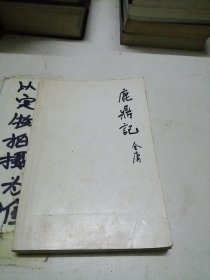 鹿鼎記
金庸
以实物拍摄为准